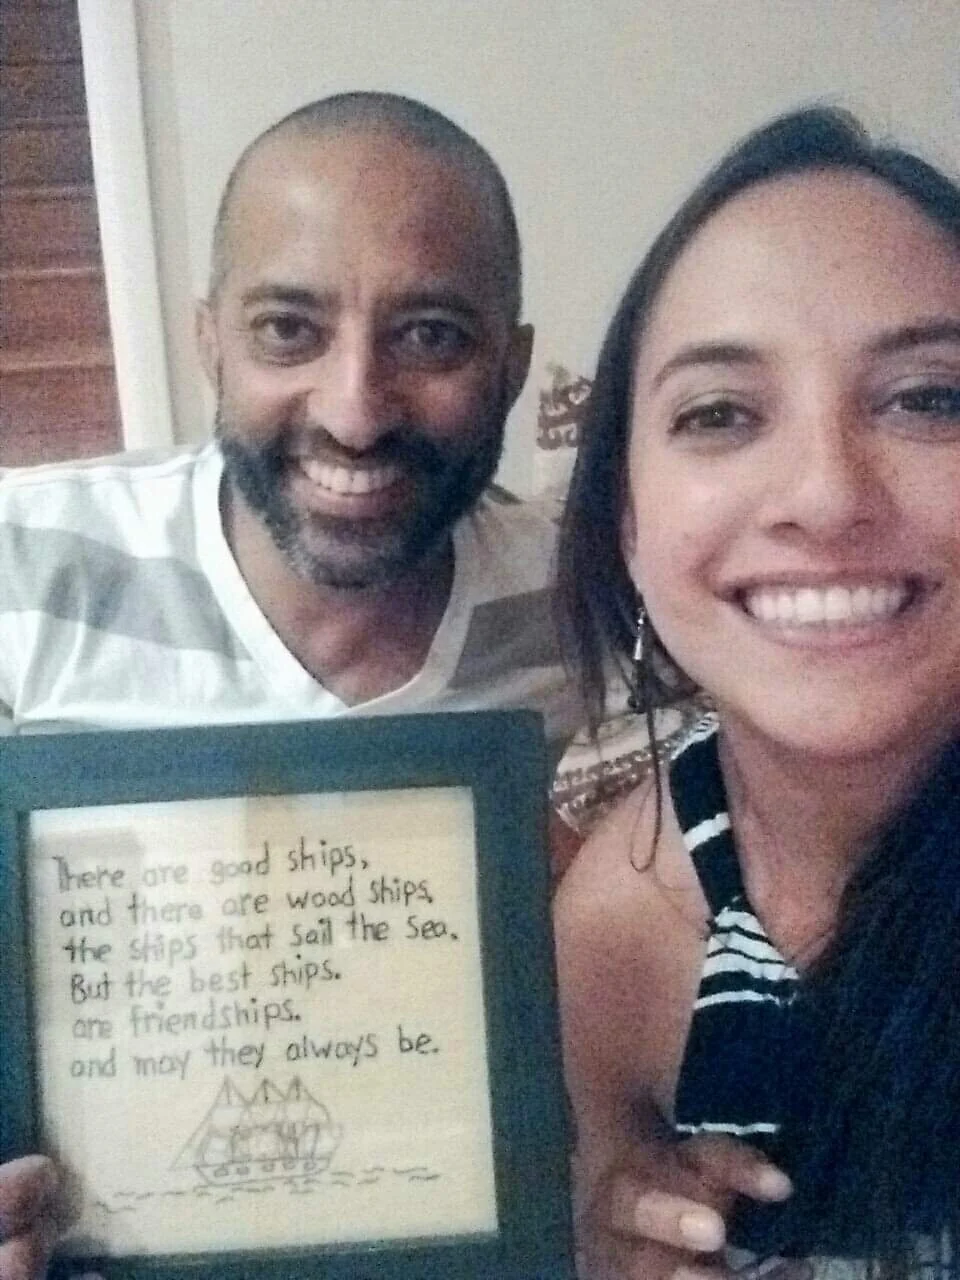 There are good ships,
and there are wood ships,
the ships that sail the sea.
But the best ships.
are friendships.
and may they always be.